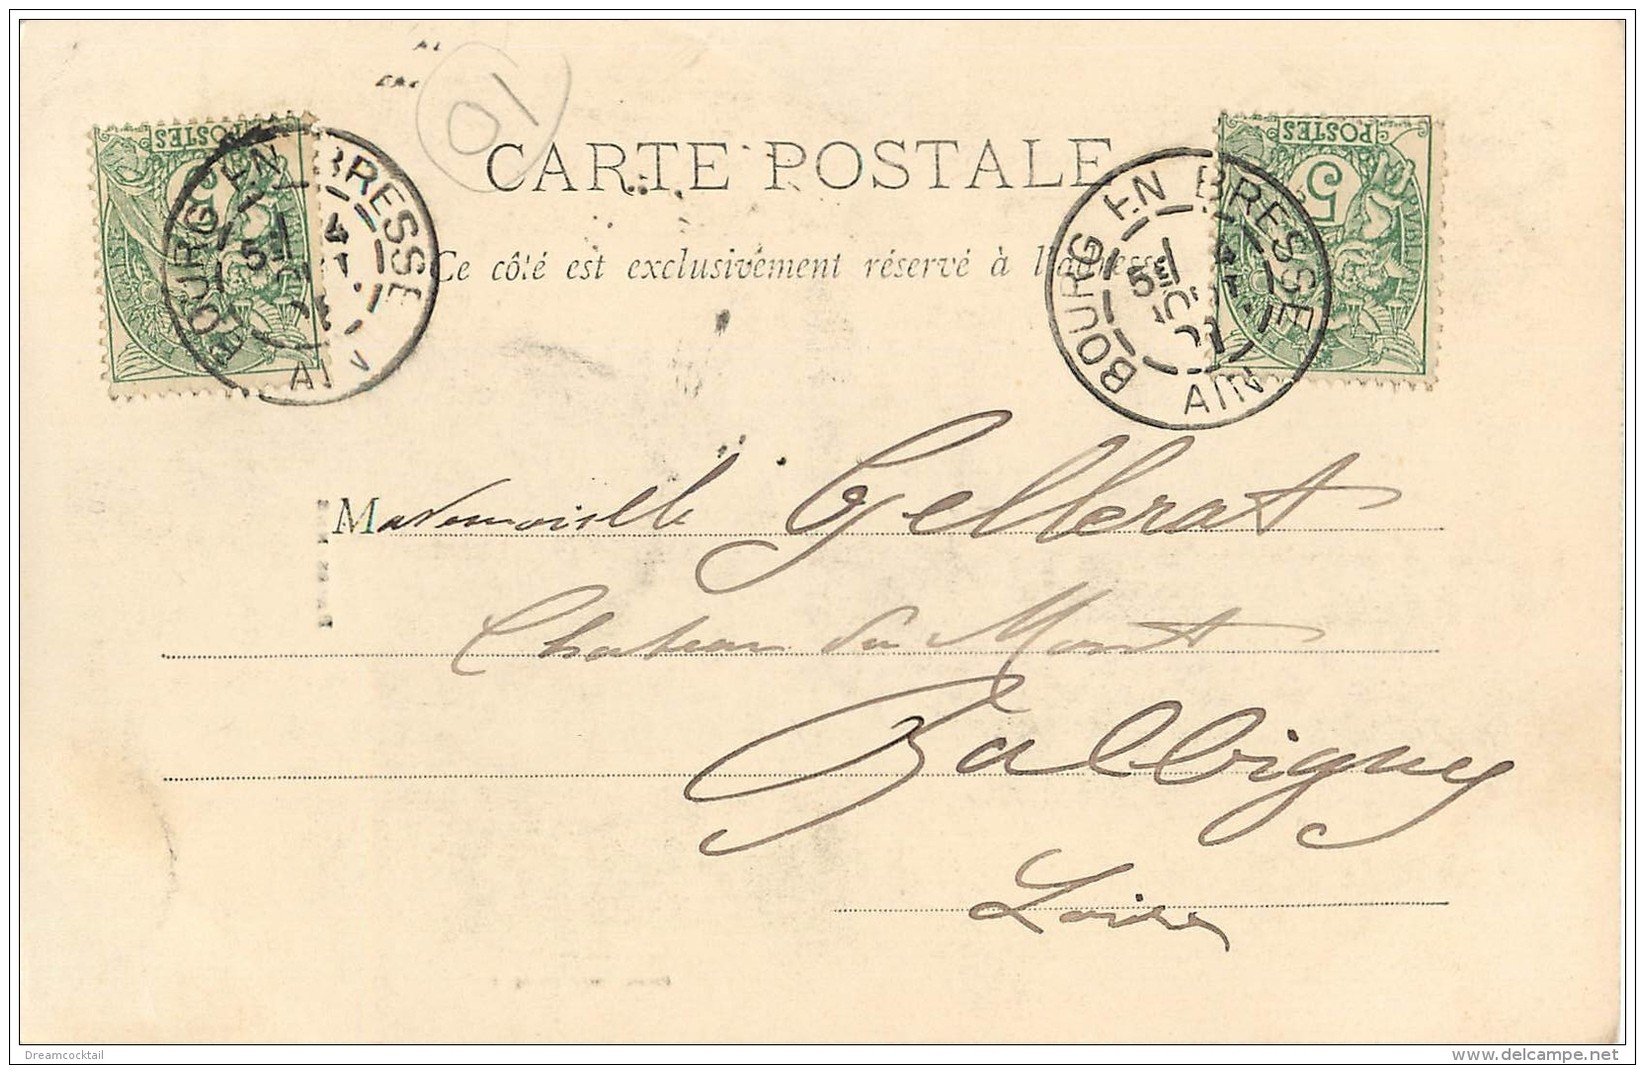 01
CARTE POSTALE
Ce côté est exclusivement réservé à l'adresse
POSTES
5c
BOURG EN BRESSE
AIN
POSTES
5c
BOURG EN BRESSE
5E
AIN
Mademoiselle Gellerat
Chateau du Mont
Balbigny
Loire
Dreamcocktail
www.delcampe.net